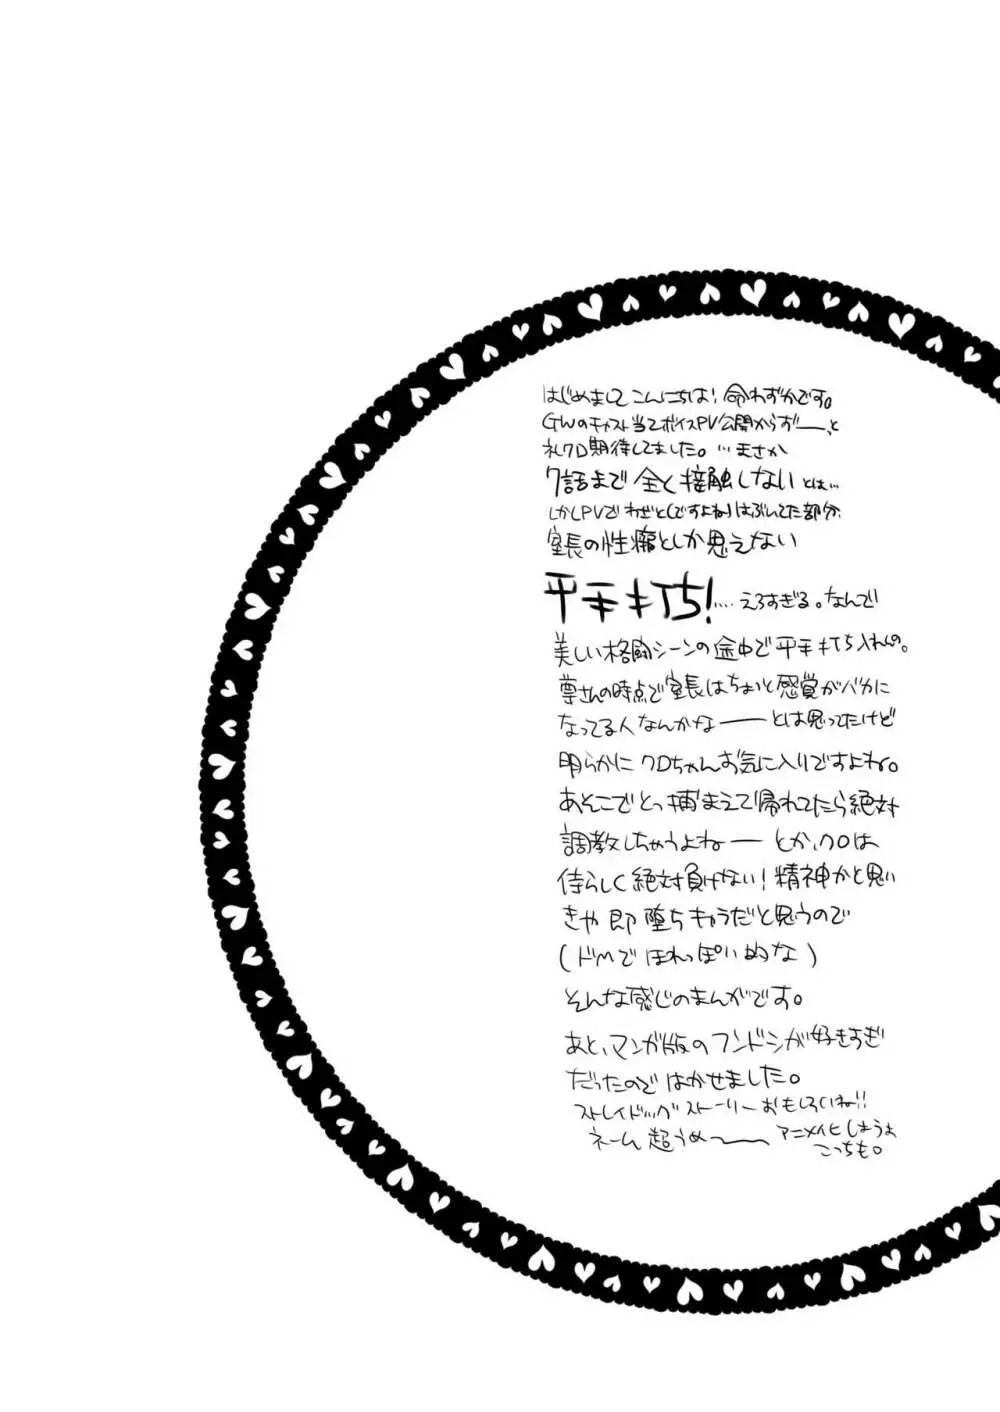 はじめましてこんにちは! 命わずかです。
GWのキャスト当てボイスPV公開からずーっと
礼クロ期待してました。…まさか
7話まで全く接触しないとは…
しかしPVでわざと(ですよね)はぶいてた部分
室長の性癖としか思えない
平手打ち!…えろすぎる。なんで
美しい格闘シーンの途中で平手打ち入れんの。
尊さんの時点で室長はちょいと感覚がバカに
なってる人なんかな――とは思ってたけど
明らかにクロちゃんお気に入りですよね。
あそこでとっ捕まえて帰れてたら絶対
調教しちゃうよねーとか、クロは
侍らしく絶対負けない!精神かと思い
きや即堕ちキャラだと思うので
(ドMでほれっぽい的な)
そんな感じのまんがです。
あと、マンガ版のフンドシが好きすぎ
だったのではかせました。
ストレイドッグストーリーおもしろいね!!
ネーム超うめ~ アニメイヒしようよ
こっちも。